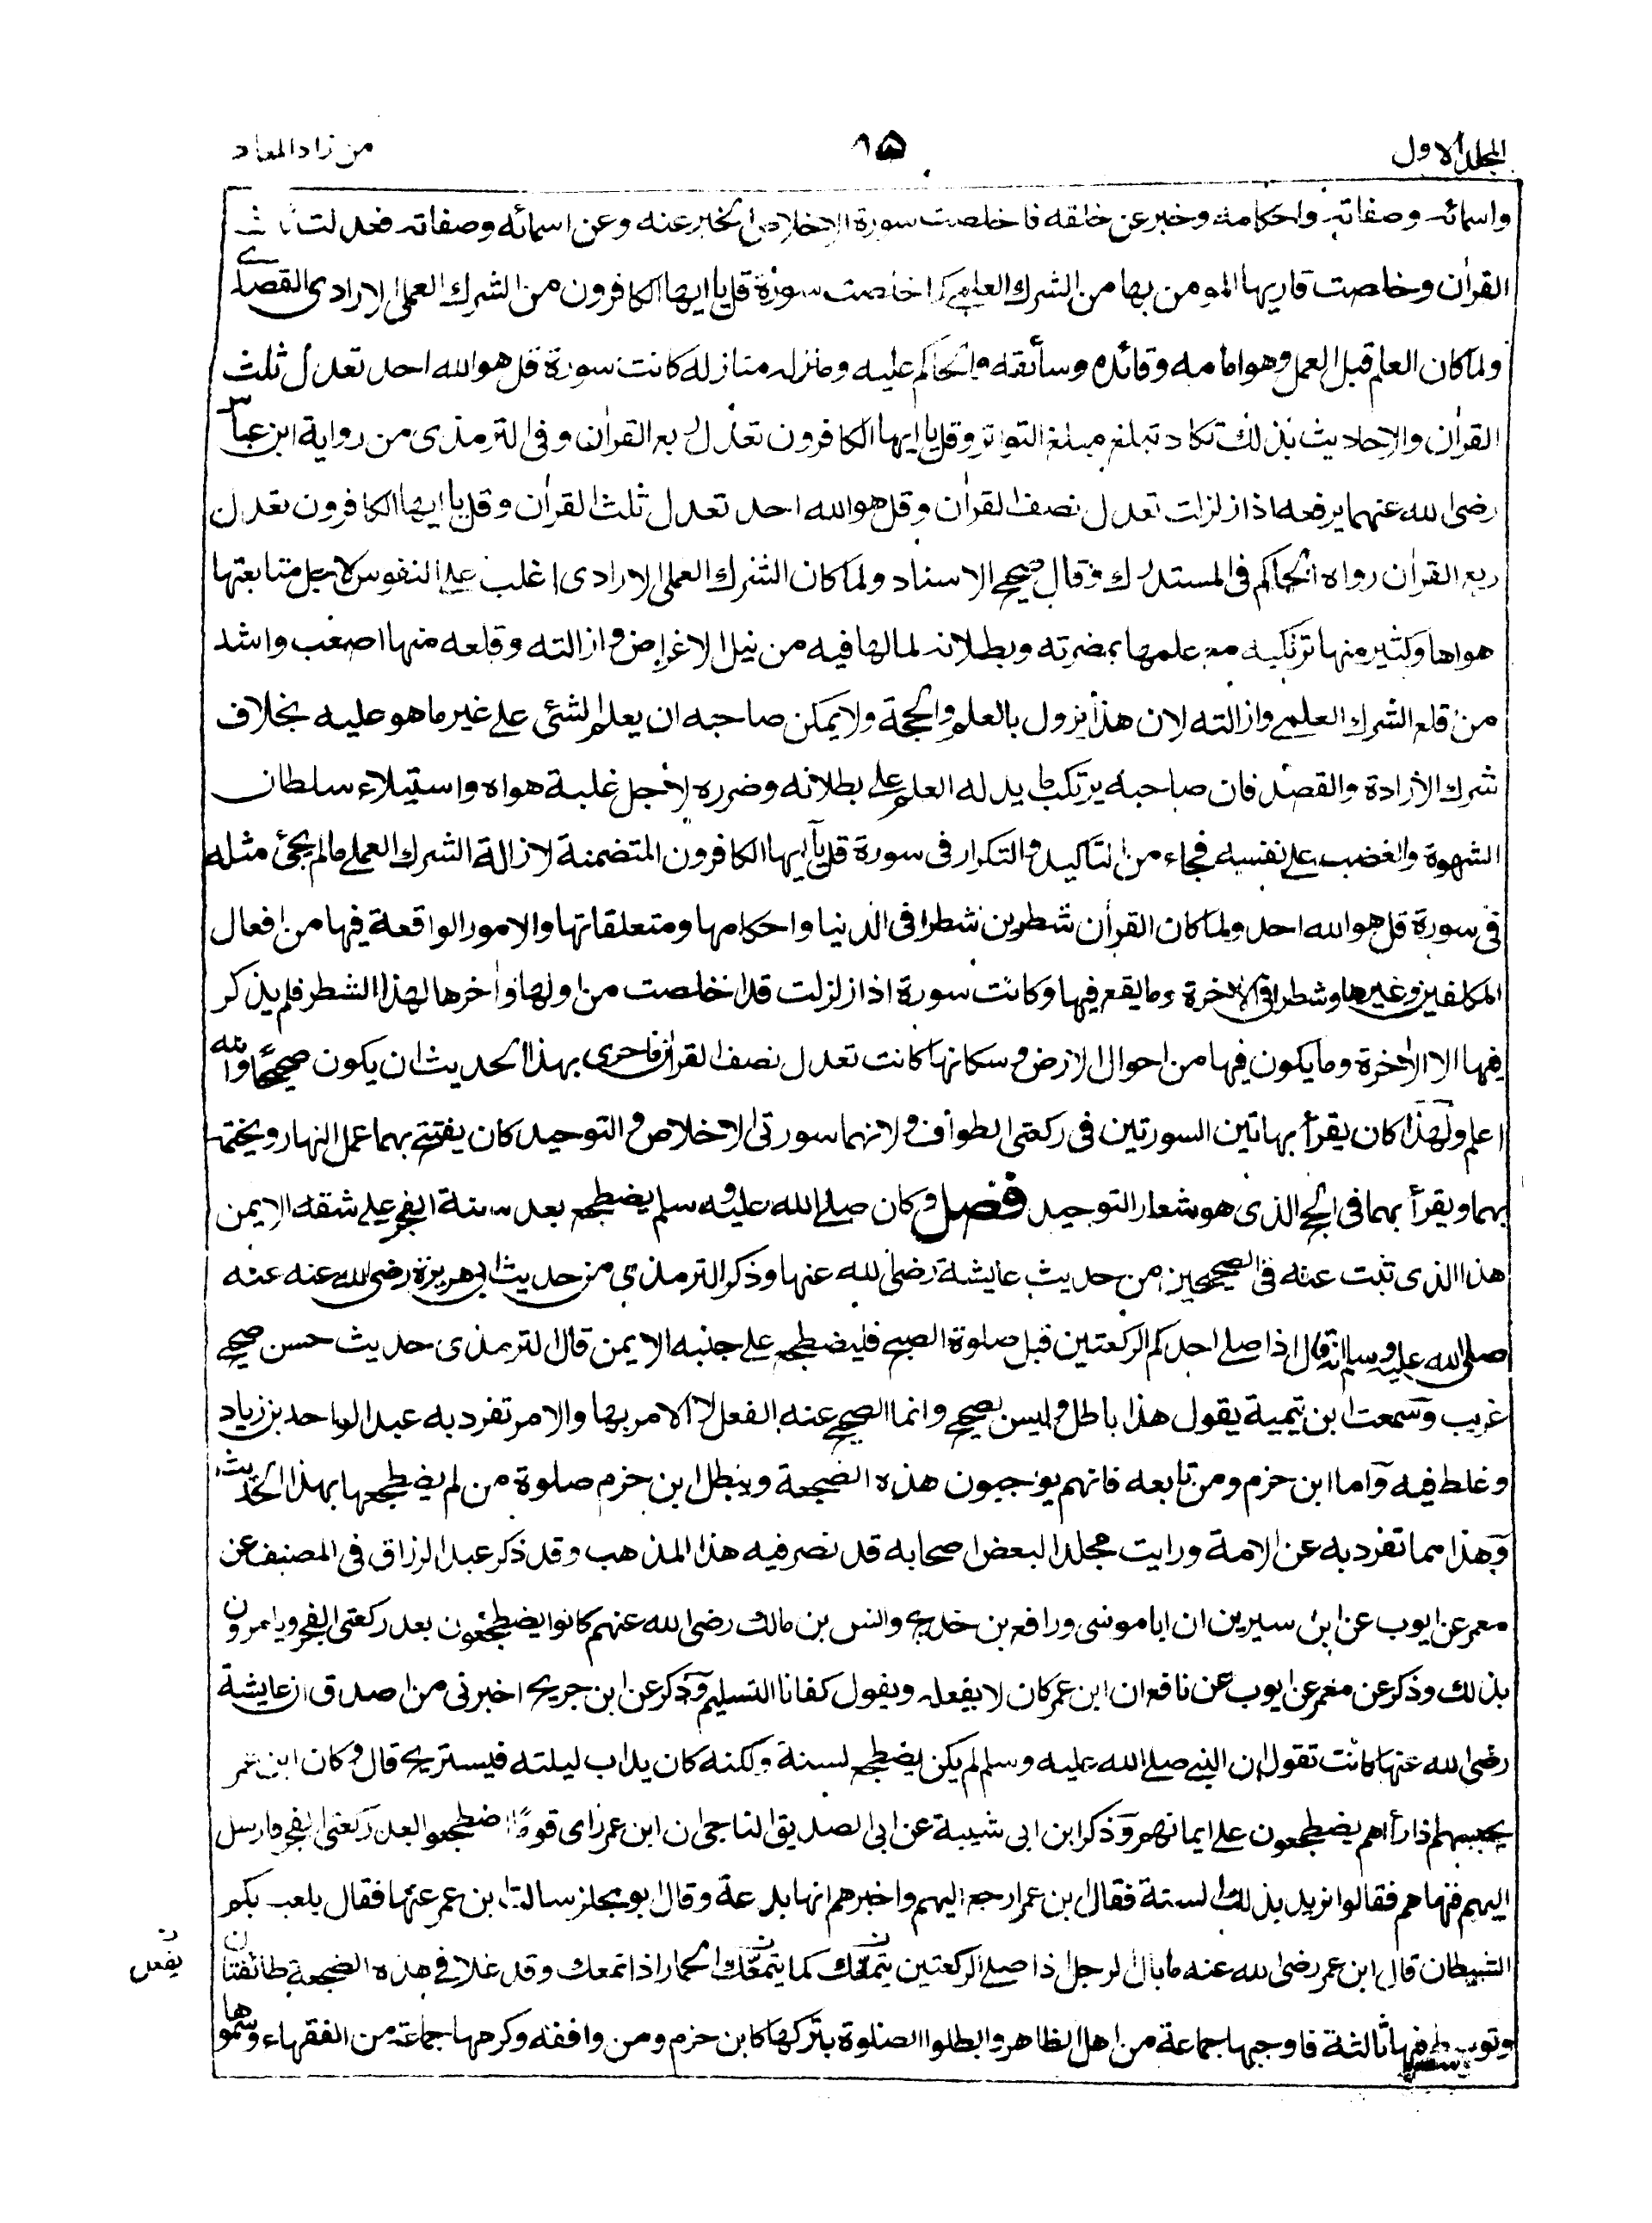 المجلد الاول
٨٥
من زاد المعاد
واسمائه وصفاته واحكامه وخبر عن خلقه فاخلصت سورة الاخلاص الخبر عنه وعن اسمائه وصفاته فعدلت ثلث
القرأن وخلصت قاريها المومن بها من الشرك العلمي كما خلصت سورة قل يا ايها الكافرون من الشرك العملى الارادى القصدے
ولما كان العلم قبل العمل وهو امامه وقائده وسائقه والحاكم عليه ومنزله منازله كانت سورة قل هو الله احد تعدل ثلث
القرأن والاحاديث بذلك تكاد تبلغ مبلغ التواتر وقل يا ايها الكافرون تعدل ربع القرأن وفى الترمذى من رواية ابن عباس
رضى الله عنهما يرفعه اذا زلزلت تعدل نصف القرأن وقل هو الله احد تعدل ثلث القرأن وقل يا ايها الكافرون تعدل
ربع القرأن رواه الحاكم فى المستدرك وقال صحيح الاسناد ولما كان الشرك العملى الارادى اغلب على النفوس لاجل متابعتها
هواها وكثير منها ترتكبه مع علمها بمضرته وبطلانه لما لها فيه من نيل الاغراض وازالته وقلعه منها اصعب واشد
من قلع الشرك العلمى وازالته لان هذا يزول بالعلم والحجة ولا يمكن صاحبه ان يعلم الشئ على غير ما هو عليه بخلاف
شرك الارادة والقصد فان صاحبه يرتكب ما يدل له العلم على بطلانه وضرره لاجل غلبة هواه واستيلاء سلطان
الشهوة والغضب على نفسه فجاء من التاكيد والتكرار فى سورة قل يآ ايها الكافرون المتضمنة لازالة الشرك العملى مالم يجئ مثله
فى سورة قل هو الله احد ولما كان القرأن شطرين شطرا فى الدنيا واحكامها ومتعلقاتها والامور الواقعة فيها من افعال
المكلفين وغيرها وشطرا فى الاخرة وما يقع فيها وكانت سورة اذا زلزلت قد اخلصت من اولها وأخرها لهذا الشطر فلم يذكر
فيها الا الأخرة وما يكون فيها من احوال الارض وسكانها كانت تعدل نصف القرأن فاحرى بهذا الحديث ان يكون صحيحًا والله
اعلم ولهذا كان يقرأ بهاتين السورتين فى ركعتى الطواف ولانهما سورتى الاخلاص والتوحيد كان يفتتح بهما عمل النهار ويختمه
بهما ويقرأ بهما فى الحج الذى هو شعار التوحيد فصل وكان صلے الله عليه وسلم يضطجع بعد سنة الفجر على شقه الايمن
هذا الذى ثبت عنه فى الصحيحين من حديث عايشة رضى الله عنها وذكر الترمذى من حديث ابى هريرة رضى الله عنه عنه
صلى الله عليه وسلم انه قال اذا صلے احدكم الركعتين قبل صلوة الصبح فليضطجع على جنبه الايمن قال الترمذى حديث حسن صحيح
غريب وسمعت ابن تيمية يقول هذا باطل وليس بصحيح وانما الصحيح عنه الفعل لا الامر بها والامر تفرد به عبد الواحد بن زياد
وغلط فيه واما ابن حزم ومن تابعه فانهم يوجبون هذه الضجعة ويبطل ابن حزم صلوة من لم يضطجعها بهذا الحديث
وهذا مما تفرد به عن الامة ورايت مجلدا لبعض اصحابه قد نصر فيه هذا المذهب وقد ذكر عبد الرزاق فى المصنف عن
معمر عن ايوب عن ابن سيرين ان ابا موسى ورافع بن خديج وانس بن مالك رضى الله عنهم كانوا يضطجعون بعد ركعتى الفجر ويامرون
بذلك وذكر عن معمر عن ايوب عن نافع ان ابن عمر كان لا يفعله ويقول كفانا التسليم وذكر عن ابن جريج اخبرنى من اصدق ان عايشة
رضى الله عنها كانت تقول ان النبى صلے الله عليه وسلم لم يكن يضطجع لسنة ولكنه كان يداب ليلته فيستريح قال وكان ابن عمر
يحصبهم اذا رأهم يضطجعون على ايمانهم وذكر ابن ابى شيبة عن ابى الصديق الناجى ان ابن عمر راى قومًا اضطجعوا بعد ركعتى الفجر فارسل
اليهم فنهاهم فقالوا نريد بذلك السنة فقال ابن عمر ارجع اليهم واخبرهم انها بدعة وقال ابو مجلز سالت ابن عمر عنها فقال يلعب بكم
الشيطان قال ابن عمر رضى الله عنه ما بال الرجل اذا صلے الركعتين يتمعك كما يتمعك الحمار اذا تمعك وقد غلا فى هذه الضجعة طائفتان
ن يفعل
وتوسط فيها ثالثة فاوجبها جماعة من اهل الظاهر وابطلوا الصلوة بتركها كابن حزم ومن وافقه وكرهها جماعة من الفقهاء وسموها